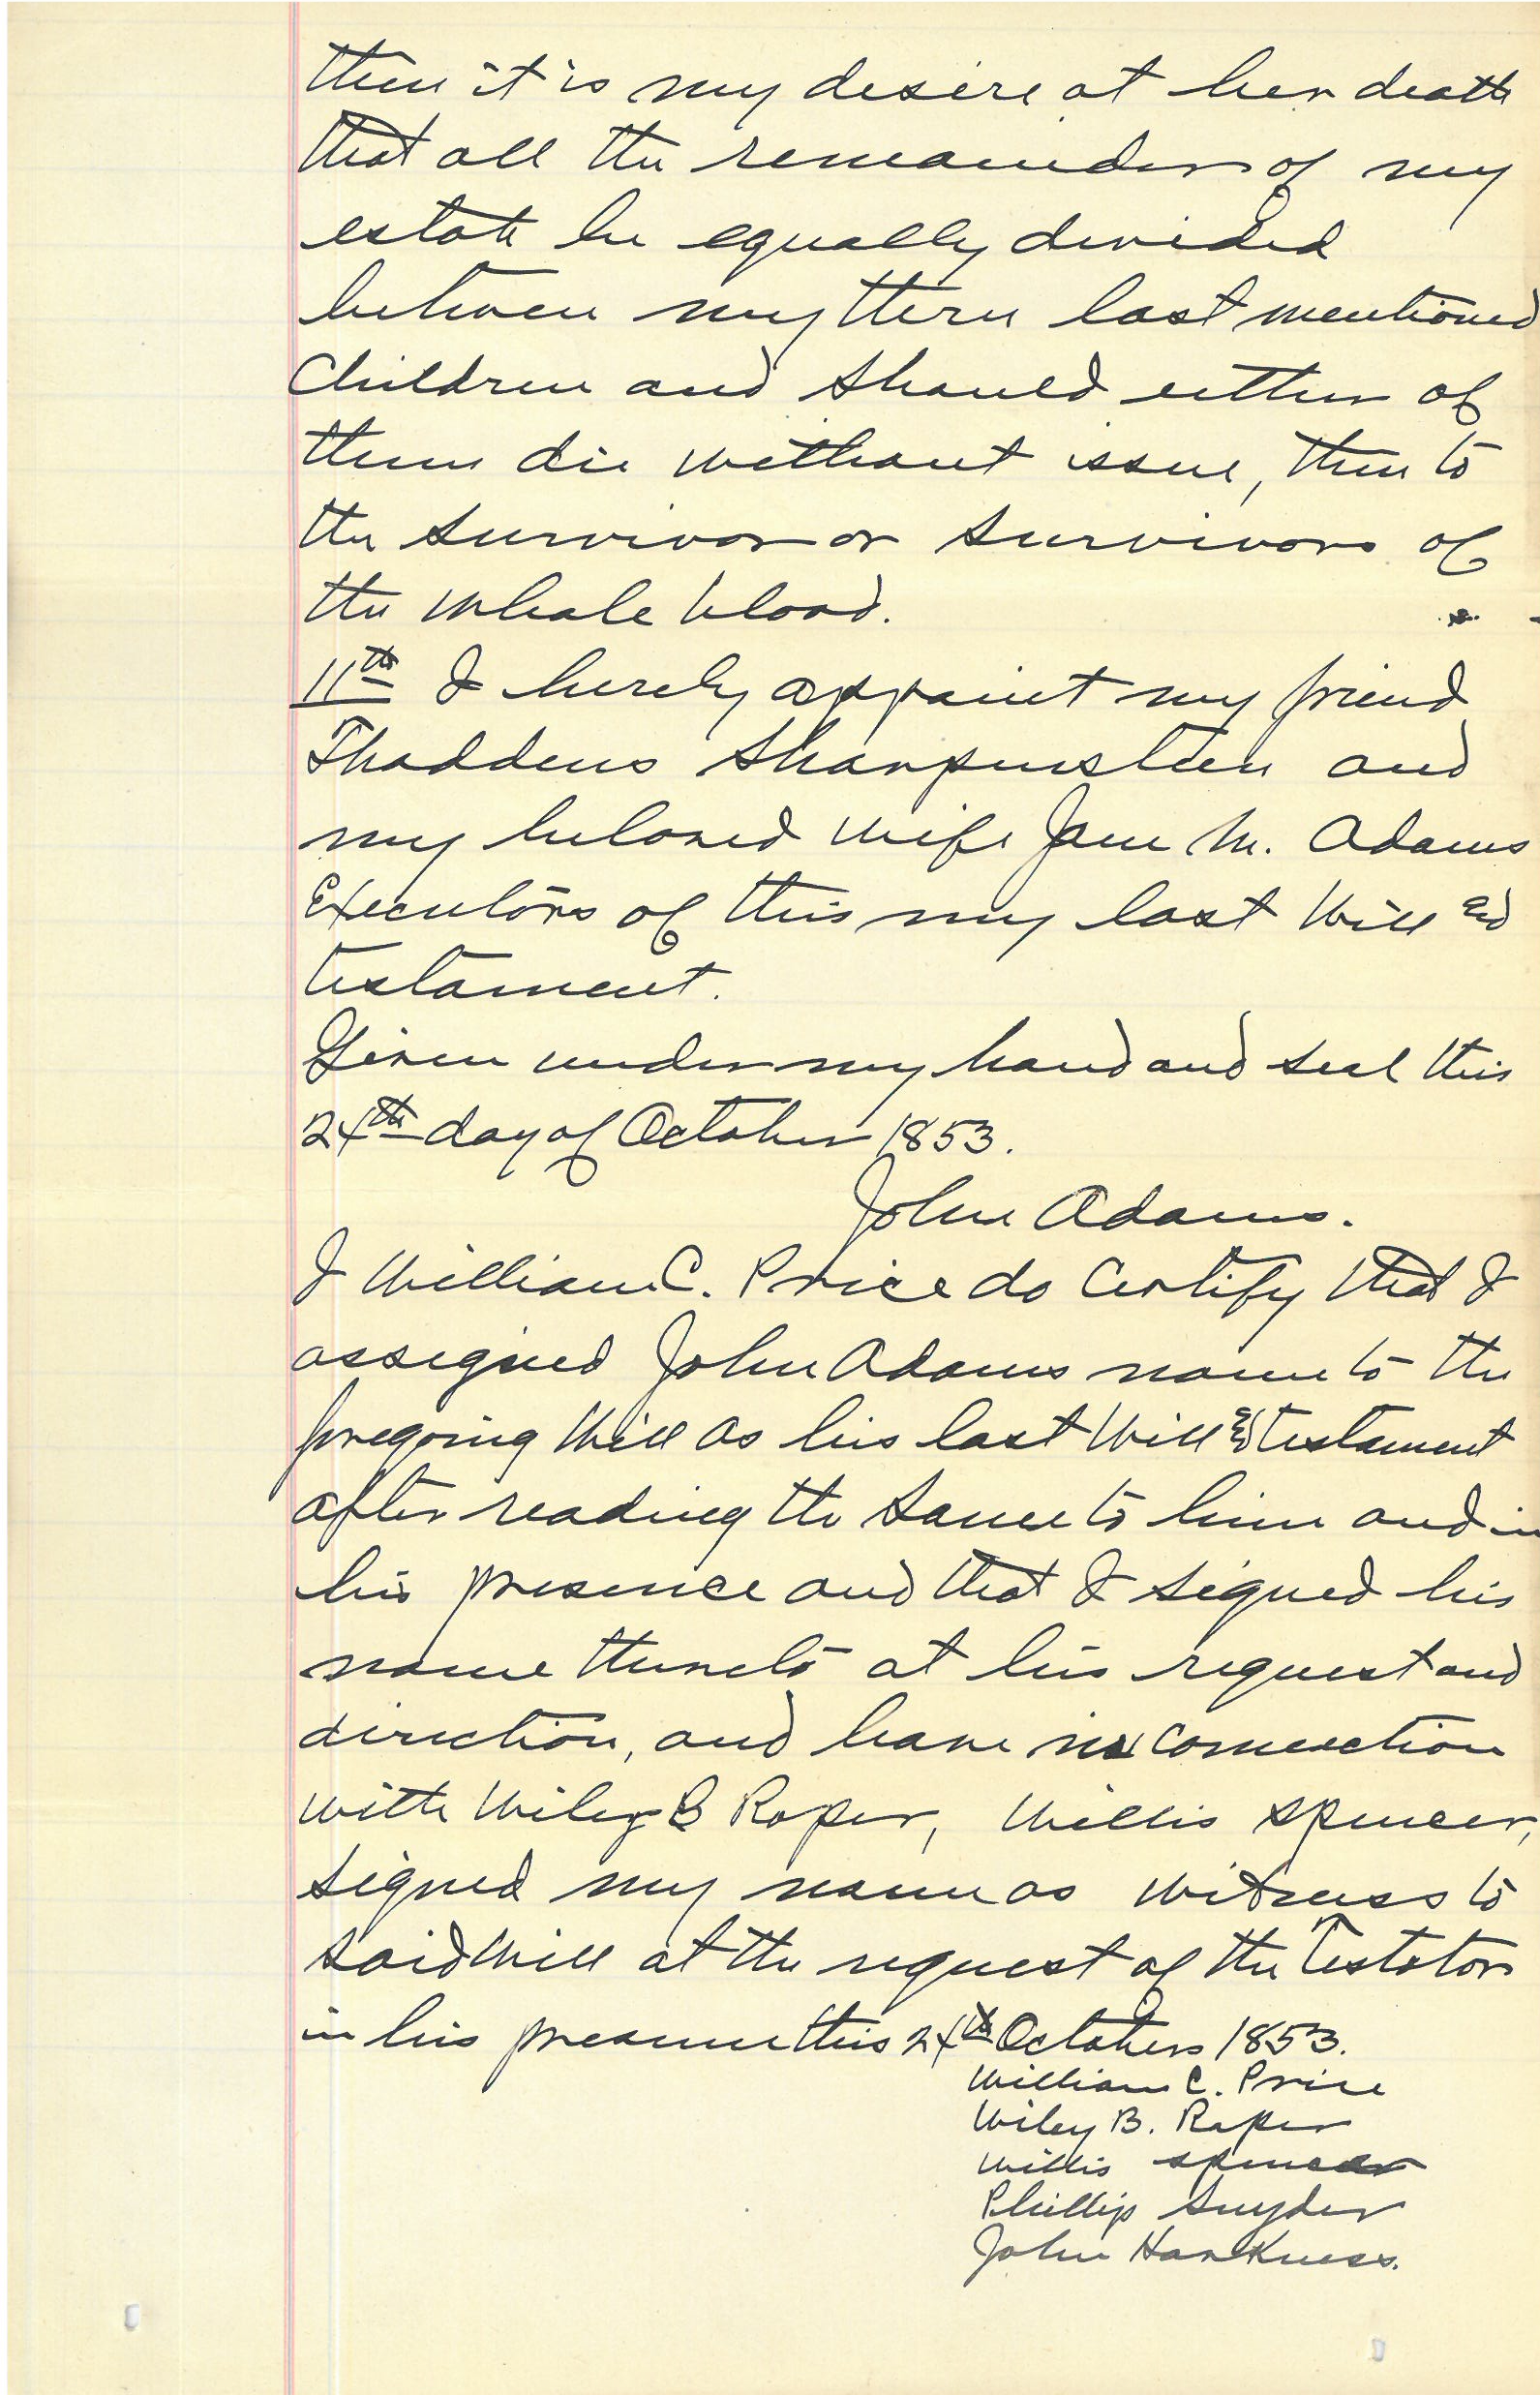 then it is my desire at her death
that all the remainder of my
estate be equally divided
between my three last mentioned
Children and should either of
them die without issue, then to
the survivor or survivors of
the whole blood.
11th I hereby appoint my friend
Thaddeus Sharpenstein and
my beloved wife Jane M. Adams
Executors of this my last Will and
testament.
Given under my hand and seal this
24th day of October 1853.
John Adams.
I William C. Price do Certify that I
assigned John Adams name to the
foregoing Will as his last Will and testament
after reading the same to him and in
his presence and that I signed his
name thereto at his request and
direction, and have in connection
with Wiley B Roper, Willis Spencer,
signed my name as witness to
said Will at the request of the Testator
in his presence this 24th October 1853.
William C. Price
Wiley B. Roper
Willis Spencer
Phillip Snyder
John Harkness.